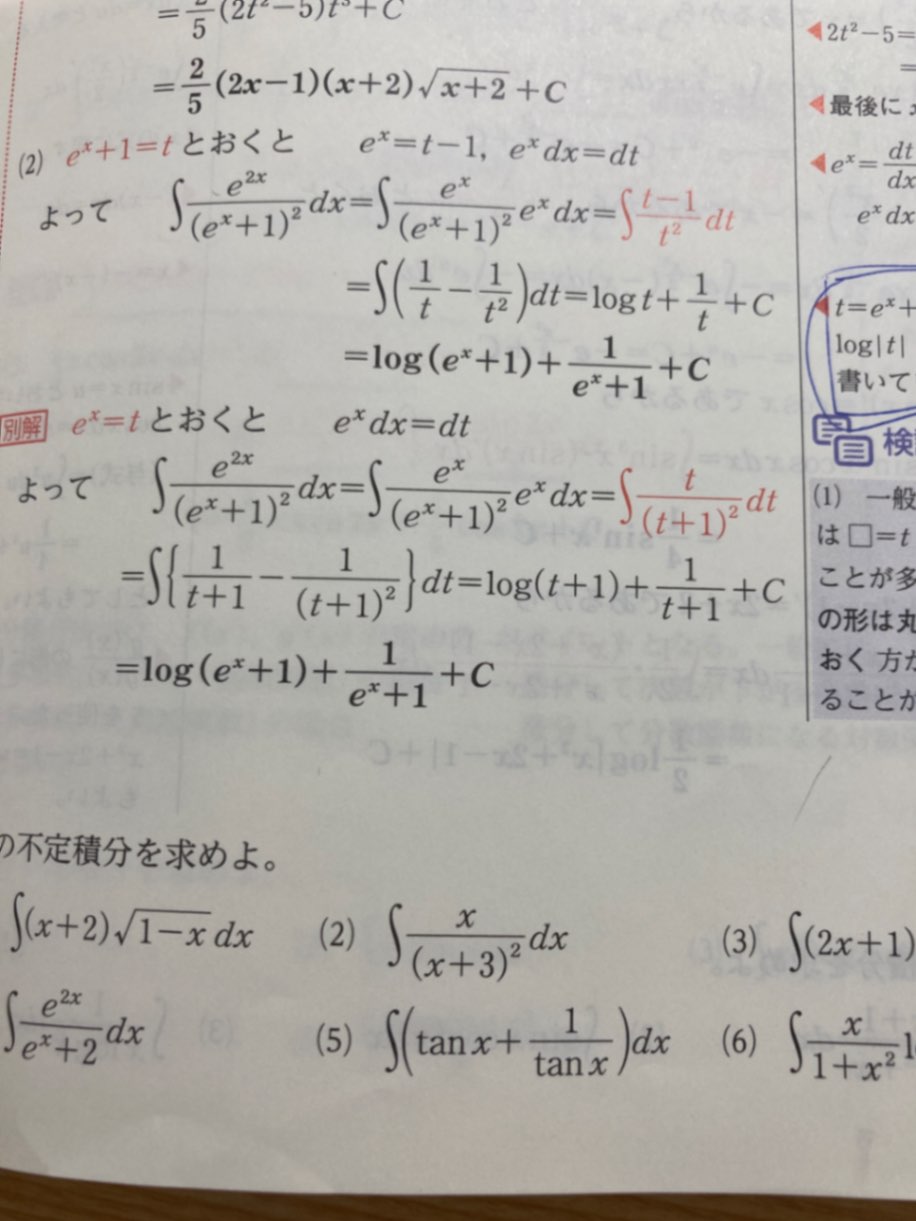 = 2/5 (2t²−5)t³+C
= 2/5 (2x−1)(x+2)√(x+2) +C
(2) eˣ+1=t とおくと eˣ=t−1, eˣdx=dt
よって ∫ e²ˣ/(eˣ+1)² dx=∫ eˣ/(eˣ+1)² eˣdx=∫ (t−1)/t² dt
=∫(1/t − 1/t²)dt=log t+ 1/t +C
=log(eˣ+1)+ 1/(eˣ+1) +C
別解 eˣ=t とおくと eˣdx=dt
よって ∫ e²ˣ/(eˣ+1)² dx=∫ eˣ/(eˣ+1)² eˣdx=∫ t/(t+1)² dt
=∫{1/(t+1) − 1/(t+1)²}dt=log(t+1)+ 1/(t+1) +C
=log(eˣ+1)+ 1/(eˣ+1) +C
◀2t²−5=
=
◀最後に
◀eˣ= dt/dx
eˣdx
◀t=eˣ+
log|t|
書いて
検
(1) 一般
は□=t
ことが多
の形は丸
おく方が
ることが
の不定積分を求めよ。
∫(x+2)√(1−x) dx (2) ∫ x/(x+3)² dx (3) ∫(2x+1)
∫ e²ˣ/(eˣ+2) dx (5) ∫(tan x+ 1/tan x)dx (6) ∫ x/(1+x²) l